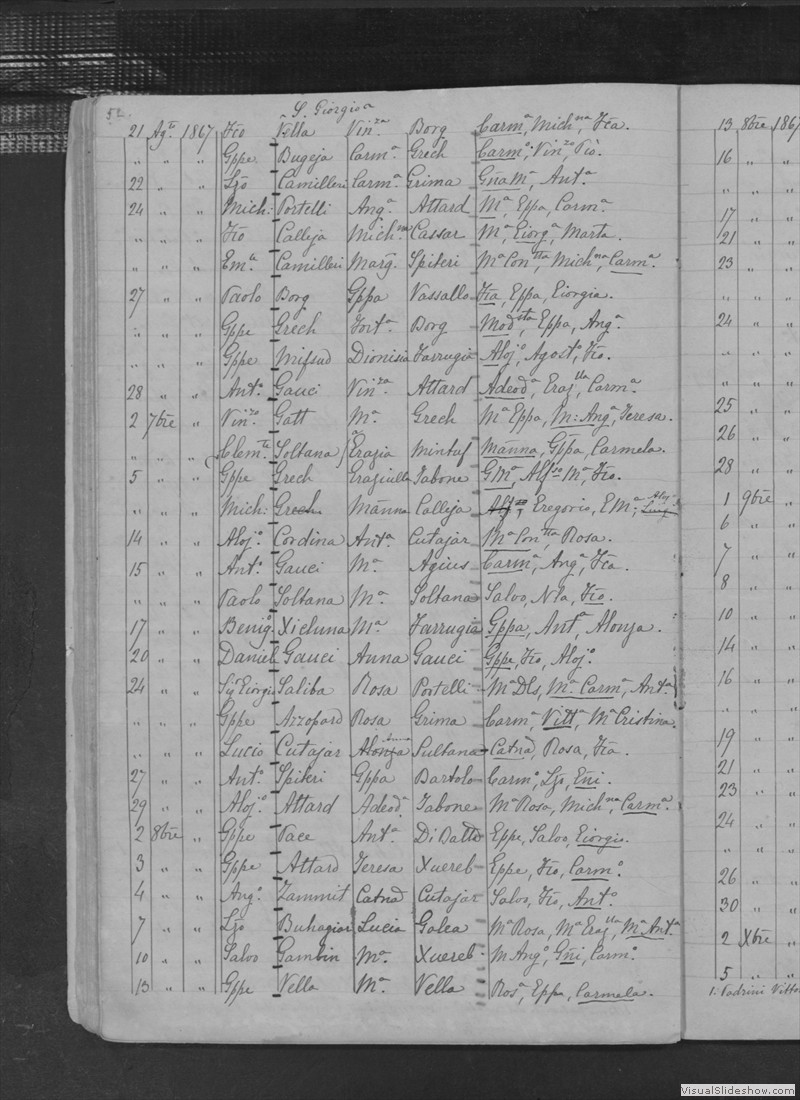 52.
S. Giorgio
21 Ag.to 1867 Fco Vella Vin.za Borg Carm.a, Mich.na, Fca.
" " " Gppe Bugeja Carm.a Grech Carm.o, Vin.zo, Pio.
22 " " Ljo Camilleri Carm.a Grima Giia M.a, Ant.a
24 " " Mich: Portelli Ang.a Attard M.a, Eppa, Carm.a
" " " Fco Calleja Mich.na Cassar M.a, Giorg.a, Marta.
" " " Em.le Camilleri Marg. Spiteri M.a Con.tta, Mich.na, Carm.a
27 " " Paolo Borg Gppa Vassallo Fca, Eppa, Giorgia.
" " " Gppe Grech Fort.a Borg Mod.sta, Eppa, Ang.a
" " " Gppe Mifsud Dionisia Farrugia Aloj.o, Agost.o, Fco.
28 " " Ant.o Gauci Vin.za Attard Adeod.a, Graz.lla, Carm.a
2 7bre " Vin.zo Gatt M.a Grech M.a Eppa, M: Ang.a, Teresa.
" " " Clem.te Soltana Grazia Mintuf Manna, Gppa, Carmela.
5 " " Gppe Grech Graziella Tabone G.M.a, Alf.so M.a, Fco.
" " " Mich: Grech Manna Calleja Gregorio, E M.a, Aloj.o
14 " " Aloj.o Cordina Ant.a Cutajar M.a Con.tta, Rosa.
15 " " Ant.o Gauci M.a Agius Carm.a, Ang.a, Fca.
" " " Paolo Soltana M.a Soltana Salvo, Nla, Fco.
17 " " Benig. Xicluna M.a Farrugia Gppa, Ant.a, Alonza.
20 " " Daniel Gauci Anna Gauci Gppe, Fco, Aloj.o
24 " " Sig Giorgio Saliba Rosa Portelli M.a Dls, M.a Carm.a, Ant.a
" " " Gppe Azzopard Rosa Grima Carm.a, Vitt.a, M.a Cristina.
" " " Lucio Cutajar Alonza Anna Sultana Catna, Rosa, Fca.
27 " " Ant.o Spiteri Gppa Bartolo Carm.o, Ljo, Gni.
29 " " Aloj.o Attard Adeod. Tabone M.a Rosa, Mich.na, Carm.a
2 8bre " Gppe Pace Ant.a Di Batta Eppe, Salvo, Giorgio.
3 " " Gppe Attard Teresa Xuereb Eppe, Fco, Carm.o
4 " " Ang.o Zammit Catna Cutajar Salvo, Fco, Ant.o
7 " " Ljo Buhagiar Lucia Galea M.a Rosa, M.a Graz.lla, M.a Ant.a
10 " " Salvo Gambin M.a Xuereb M Ang.o, Gni, Carm.o
13 " " Gppe Vella M.a Vella Ros.a, Eppa, Carmela.
13 8bre 1867
16 " "
" " "
17 " "
21 " "
23 " "
" " "
24 " "
" " "
" " "
25 " "
26 " "
28 " "
1 9bre "
6 " "
7 " "
8 " "
10 " "
14 " "
16 " "
" " "
19 " "
21 " "
23 " "
24 " "
" " "
26 " "
30 " "
2 Xbre "
5 " "
1. Padrini Vitto
VisualSlideshow.com